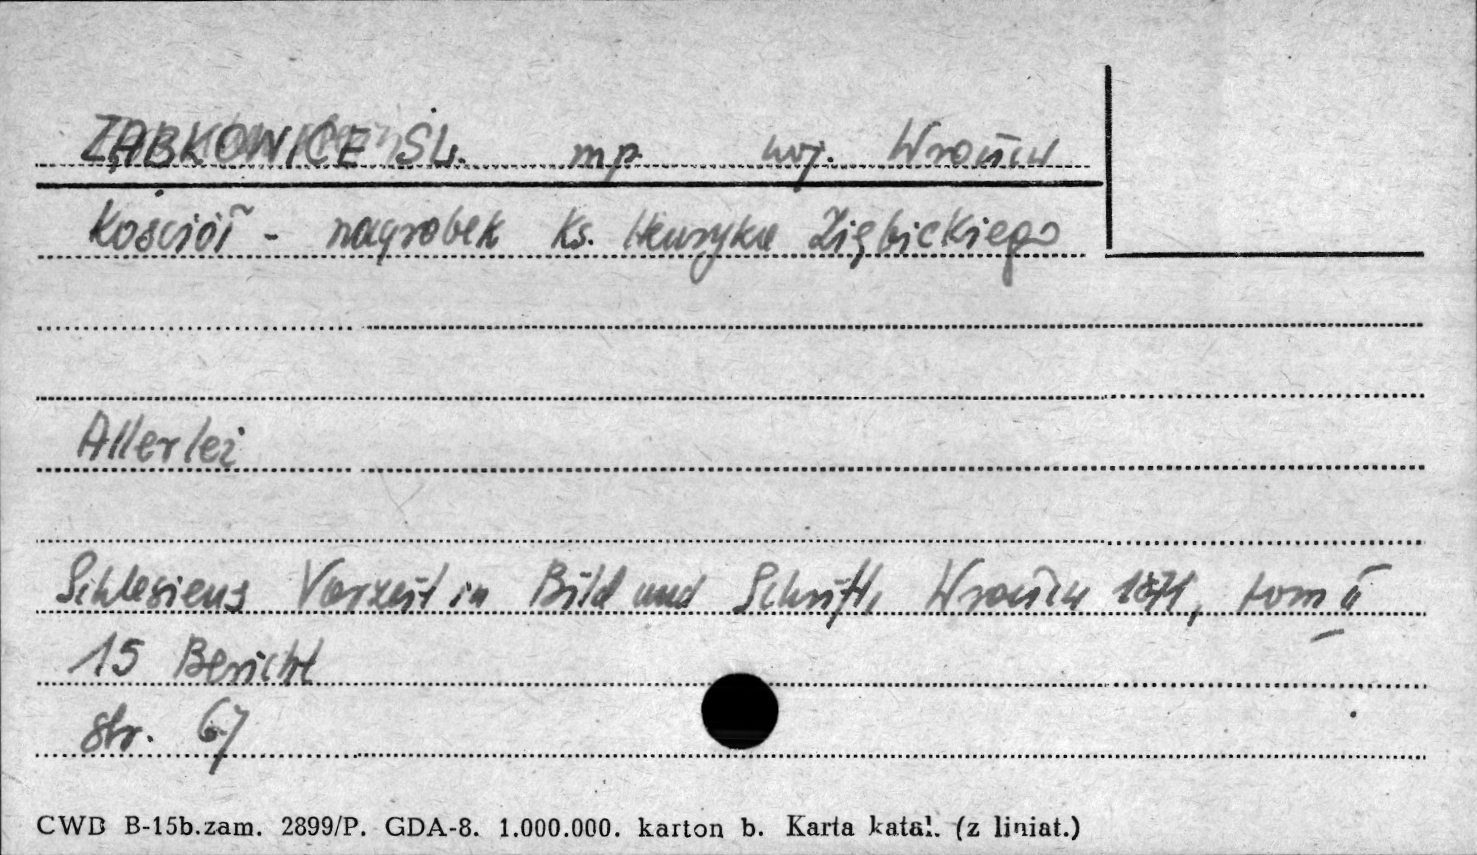 ZĄBKOWICE ŚL. mp. woj. Wrocław
Kościół - nagrobek Ks. Henryka Ziębickiego
Allerlei
Schlesiens Vorzeit in Bild und Schrift, Wrocław 1871, tom II
15 Bericht
str. 67
CWD B-15b.zam. 2899/P. GDA-8. 1.000.000. karton b. Karta katal. (z liniat.)